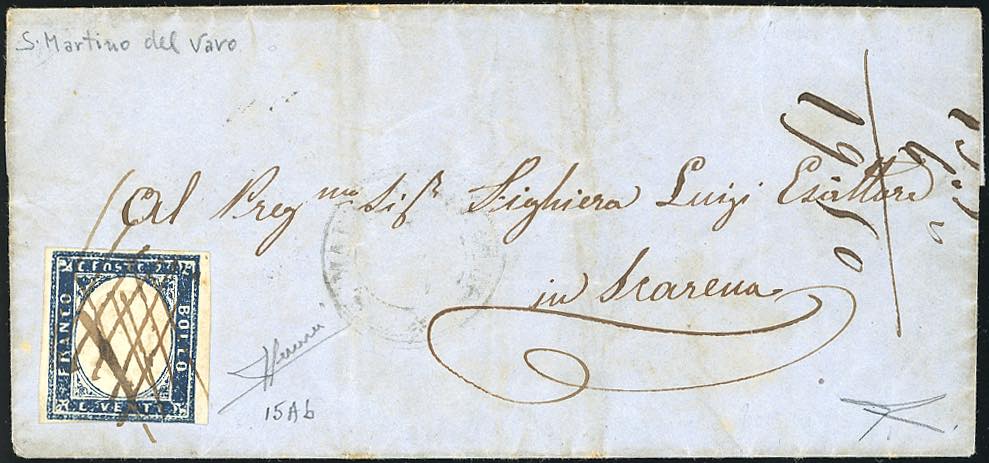 S. Martino del Varo
Al Preg.mo Sig.r Sighiera Luigi Esattore
in Scarena
C. POSTE 20
FRANCO
BOLLO
C. VENTI
15Ab